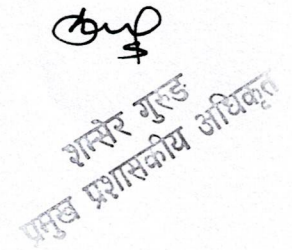 शमसेर गुरुङ
प्रमुख प्रशासकीय अधिकृत